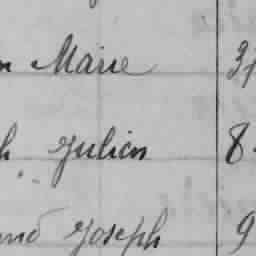 Marie 37
h Julien 8
Joseph 9